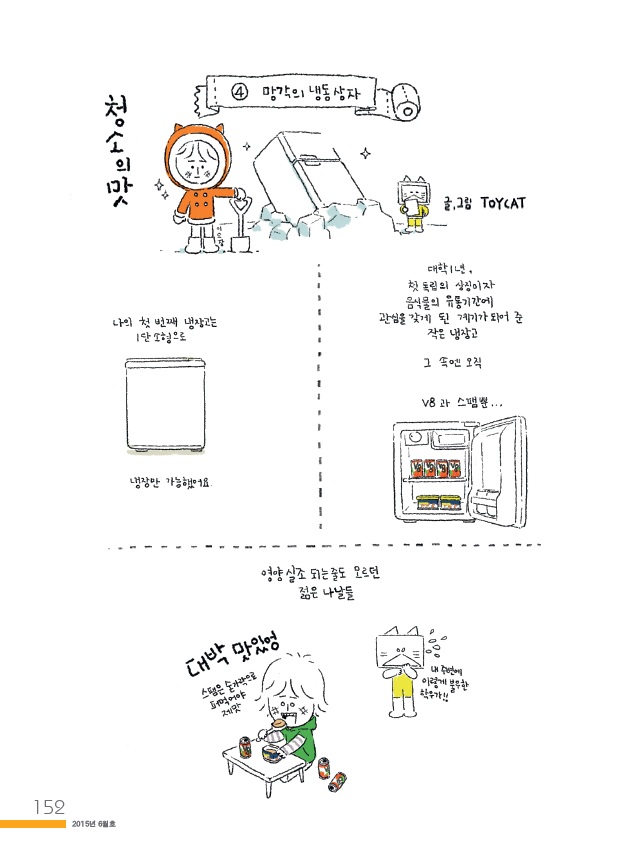 청소의 맛
④ 망각의 냉동상자
글,그림 TOYCAT
나의 첫 번째 냉장고는
1단 소형으로
냉장만 가능했어요.
대학1년,
첫 독립의 상징이자
음식물의 유통기간에
관심을 갖게 된 계기가 되어 준
작은 냉장고
그 속엔 오직
V8과 스팸뿐...
영양실조 되는줄도 모르던
젊은 나날들
대박 맛있엉
스팸은 숟가락으로
퍼먹어야
제맛
내 주변에
이렇게 불우한
학우가!!
152
2015년 6월호